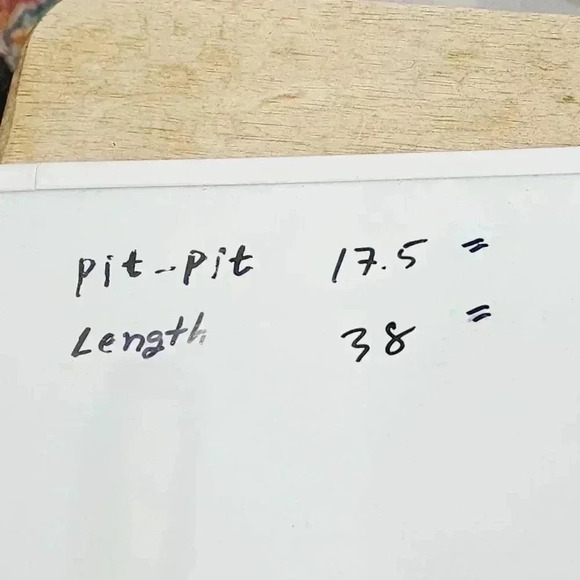 pit-pit 17.5 "
Length 38 "